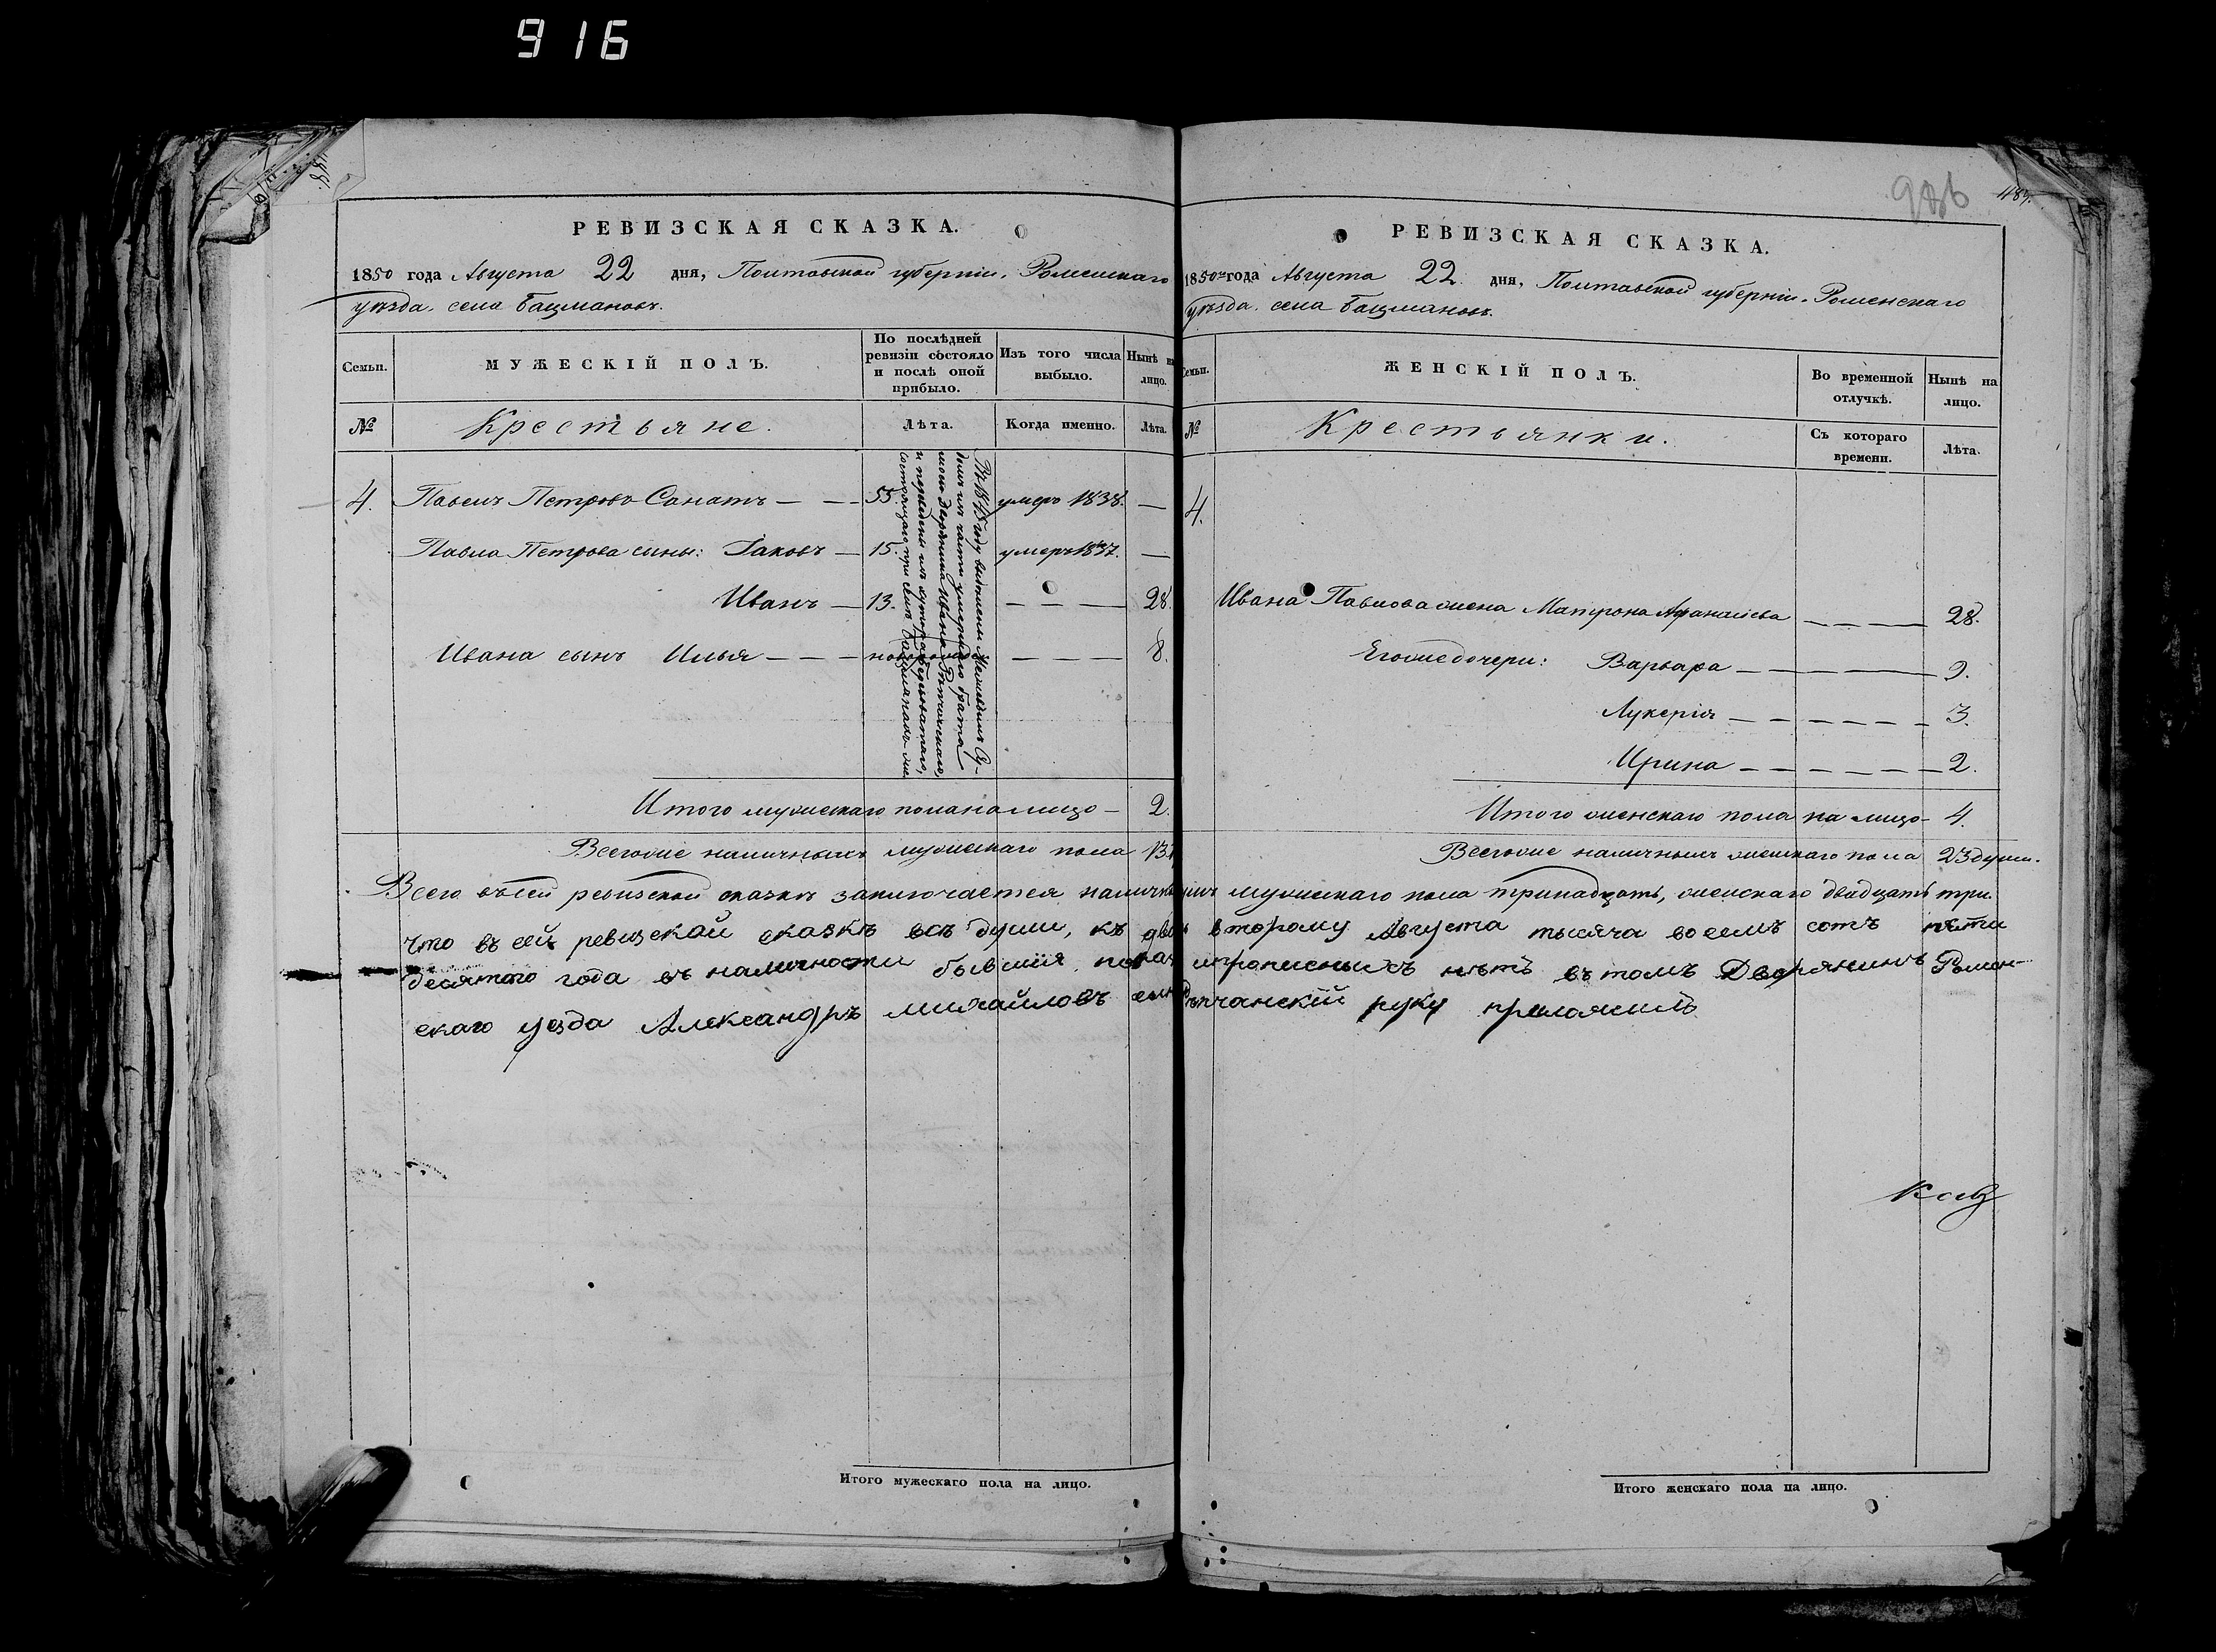 916
986
489.
РЕВИЗСКАЯ СКАЗКА.
1850 года Августа 22 дня, Полтавской губерніи. Роменскаго
уѣзда. села Бацмановъ.
Семьи.
МУЖЕСКІЙ ПОЛЪ.
По послѣдней ревизіи состояло и послѣ оной прибыло.
Изъ того числа выбыло.
Нынѣ на лицо.
№
Крестьяне.
Лѣта.
Когда именно.
Лѣта.
4. Павелъ Петровъ Санатъ — — — 55. умеръ 1838. —
Павла Петрова сыны: Іаковъ — 15. умеръ 1837. —
Иванъ — 13. — — — 28.
Ивана сынъ Илья — — — новорожде — — — 8.
Въ 1845 году
части умершаго брата
моего Дворянина Ивана Рѣпчанскаго,
и переведены изъ хутора
состоящаго при селѣ Бацманахъ
Итого мужескаго пола на лицо — 2.
Всего же наличныхъ мужескаго пола 13.
РЕВИЗСКАЯ СКАЗКА.
1850 года Августа 22. дня, Полтавской губерніи. Роменскаго
уѣзда. села Бацмановъ.
Семьи.
ЖЕНСКІЙ ПОЛЪ.
Во временной отлучкѣ.
Нынѣ на лицо.
№
Крестьянки.
Съ котораго времени.
Лѣта.
4.
Ивана Павлова жена Матрона Афанасіева — — — — 28.
Его же дочери: Варвара — — — — 9.
Лукерія — — — — — — 3.
Ирина — — — — — — 2.
Итого женскаго пола на лицо — 4.
Всего же наличныхъ женскаго пола 23 души.
Всего въ сей ревизской сказкѣ заключается наличныхъ мужескаго пола тринадцать, женскаго двадцать три.
что въ сей ревизской сказкѣ всѣ души, къ второму Августа тысяча восемъ сотъ пяти
десятого года въ наличности бывшія и прописныхъ нѣтъ въ томъ Дворянинъ Ромен-
скаго уезда Александръ михайловъ сынъ Рѣпчанскій руку приложилъ
Итого мужескаго пола на лицо.
Итого женскаго пола на лицо.